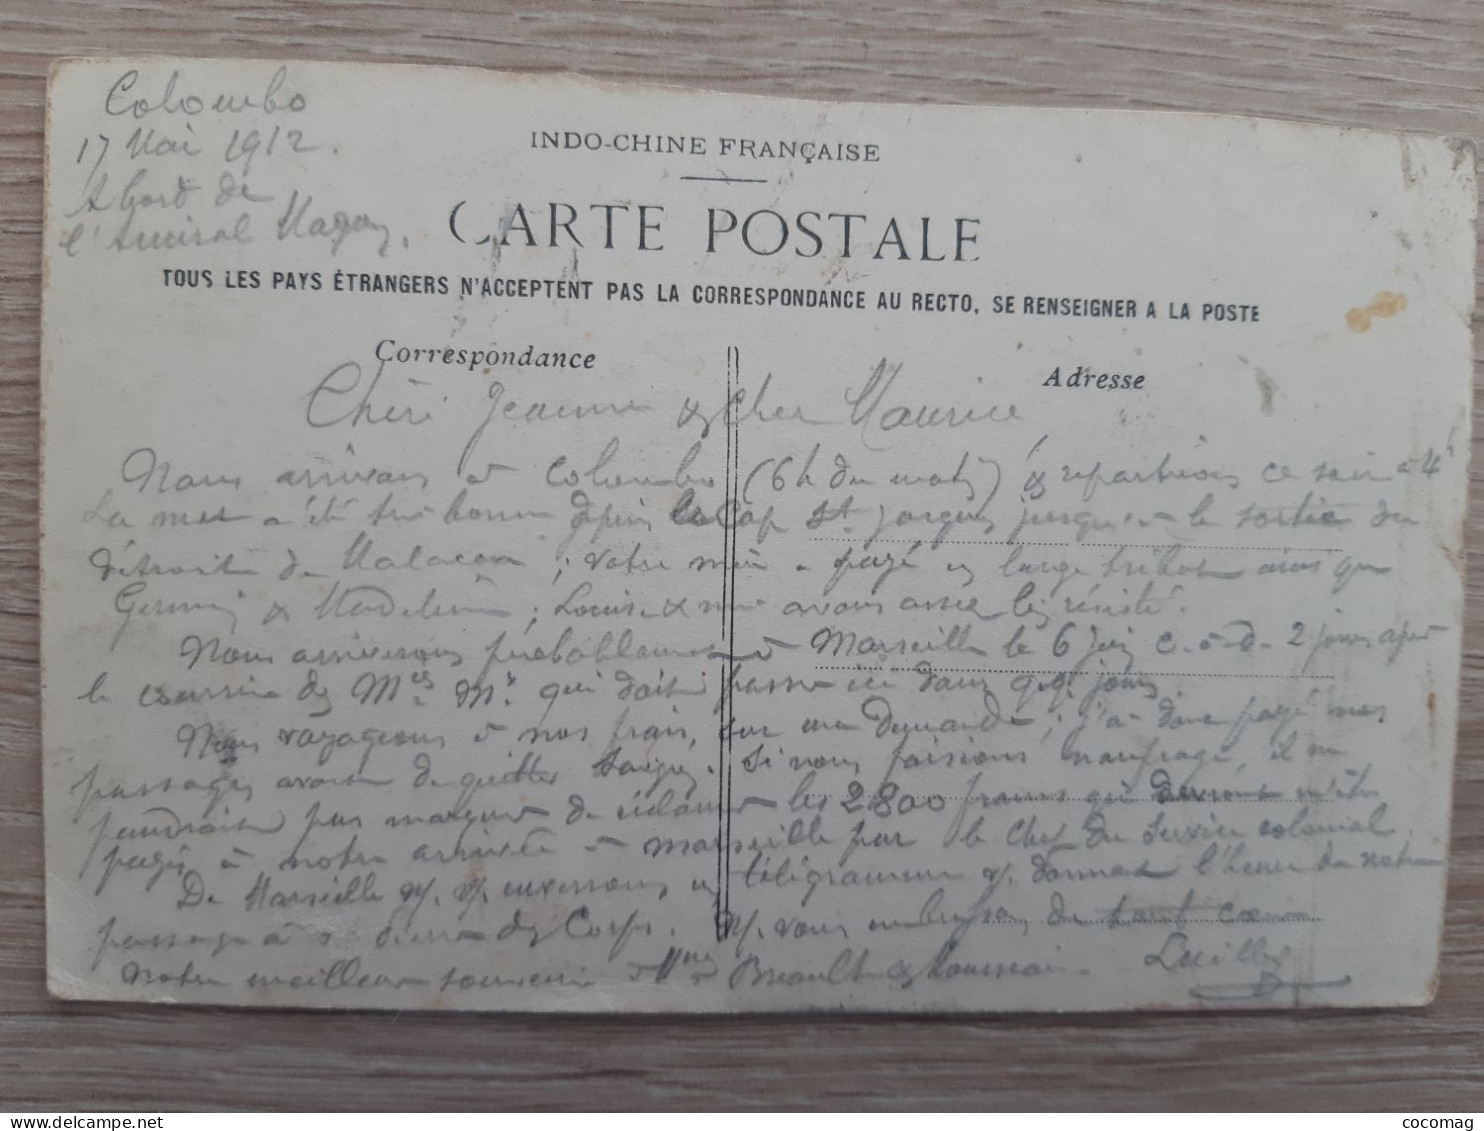 Colombo
17 Mai 1912.
A bord de
l'Amiral Magon,
INDO-CHINE FRANÇAISE
CARTE POSTALE
TOUS LES PAYS ÉTRANGERS N'ACCEPTENT PAS LA CORRESPONDANCE AU RECTO, SE RENSEIGNER A LA POSTE
Correspondance
Adresse
Chère Jeanne & cher Maurice
Nous arrivons à Colombo (6h du matin) & repartirons ce soir à 4h
La mer a été très bonne depuis le Cap St Jacques jusqu'à la sortie du
détroit de Malacca ; votre mère a payé un large tribut ainsi que
Germaine & Madeleine ; Louise & moi avons assez bien résisté.
Nous arriverons probablement à Marseille le 6 Juin c.-à-d. 2 jours après
le courrier des Mes Mes qui doit passer ici dans qq. jours.
Nous voyageons à nos frais, sur ma demande ; j'ai donc payé nos
passages avant de quitter Saïgon. Si nous faisions naufrage, il ne
faudrait pas manquer de réclamer les 2800 francs qui devront m'être
payés à notre arrivée à Marseille par le Chef du Service colonial.
De Marseille n/. v/. enverrons un télégramme v/. donnant l'heure de notre
passage à . N/. vous embrassons de tout cœur
Notre meilleur souvenir à Mmes Breault & Rousseau.